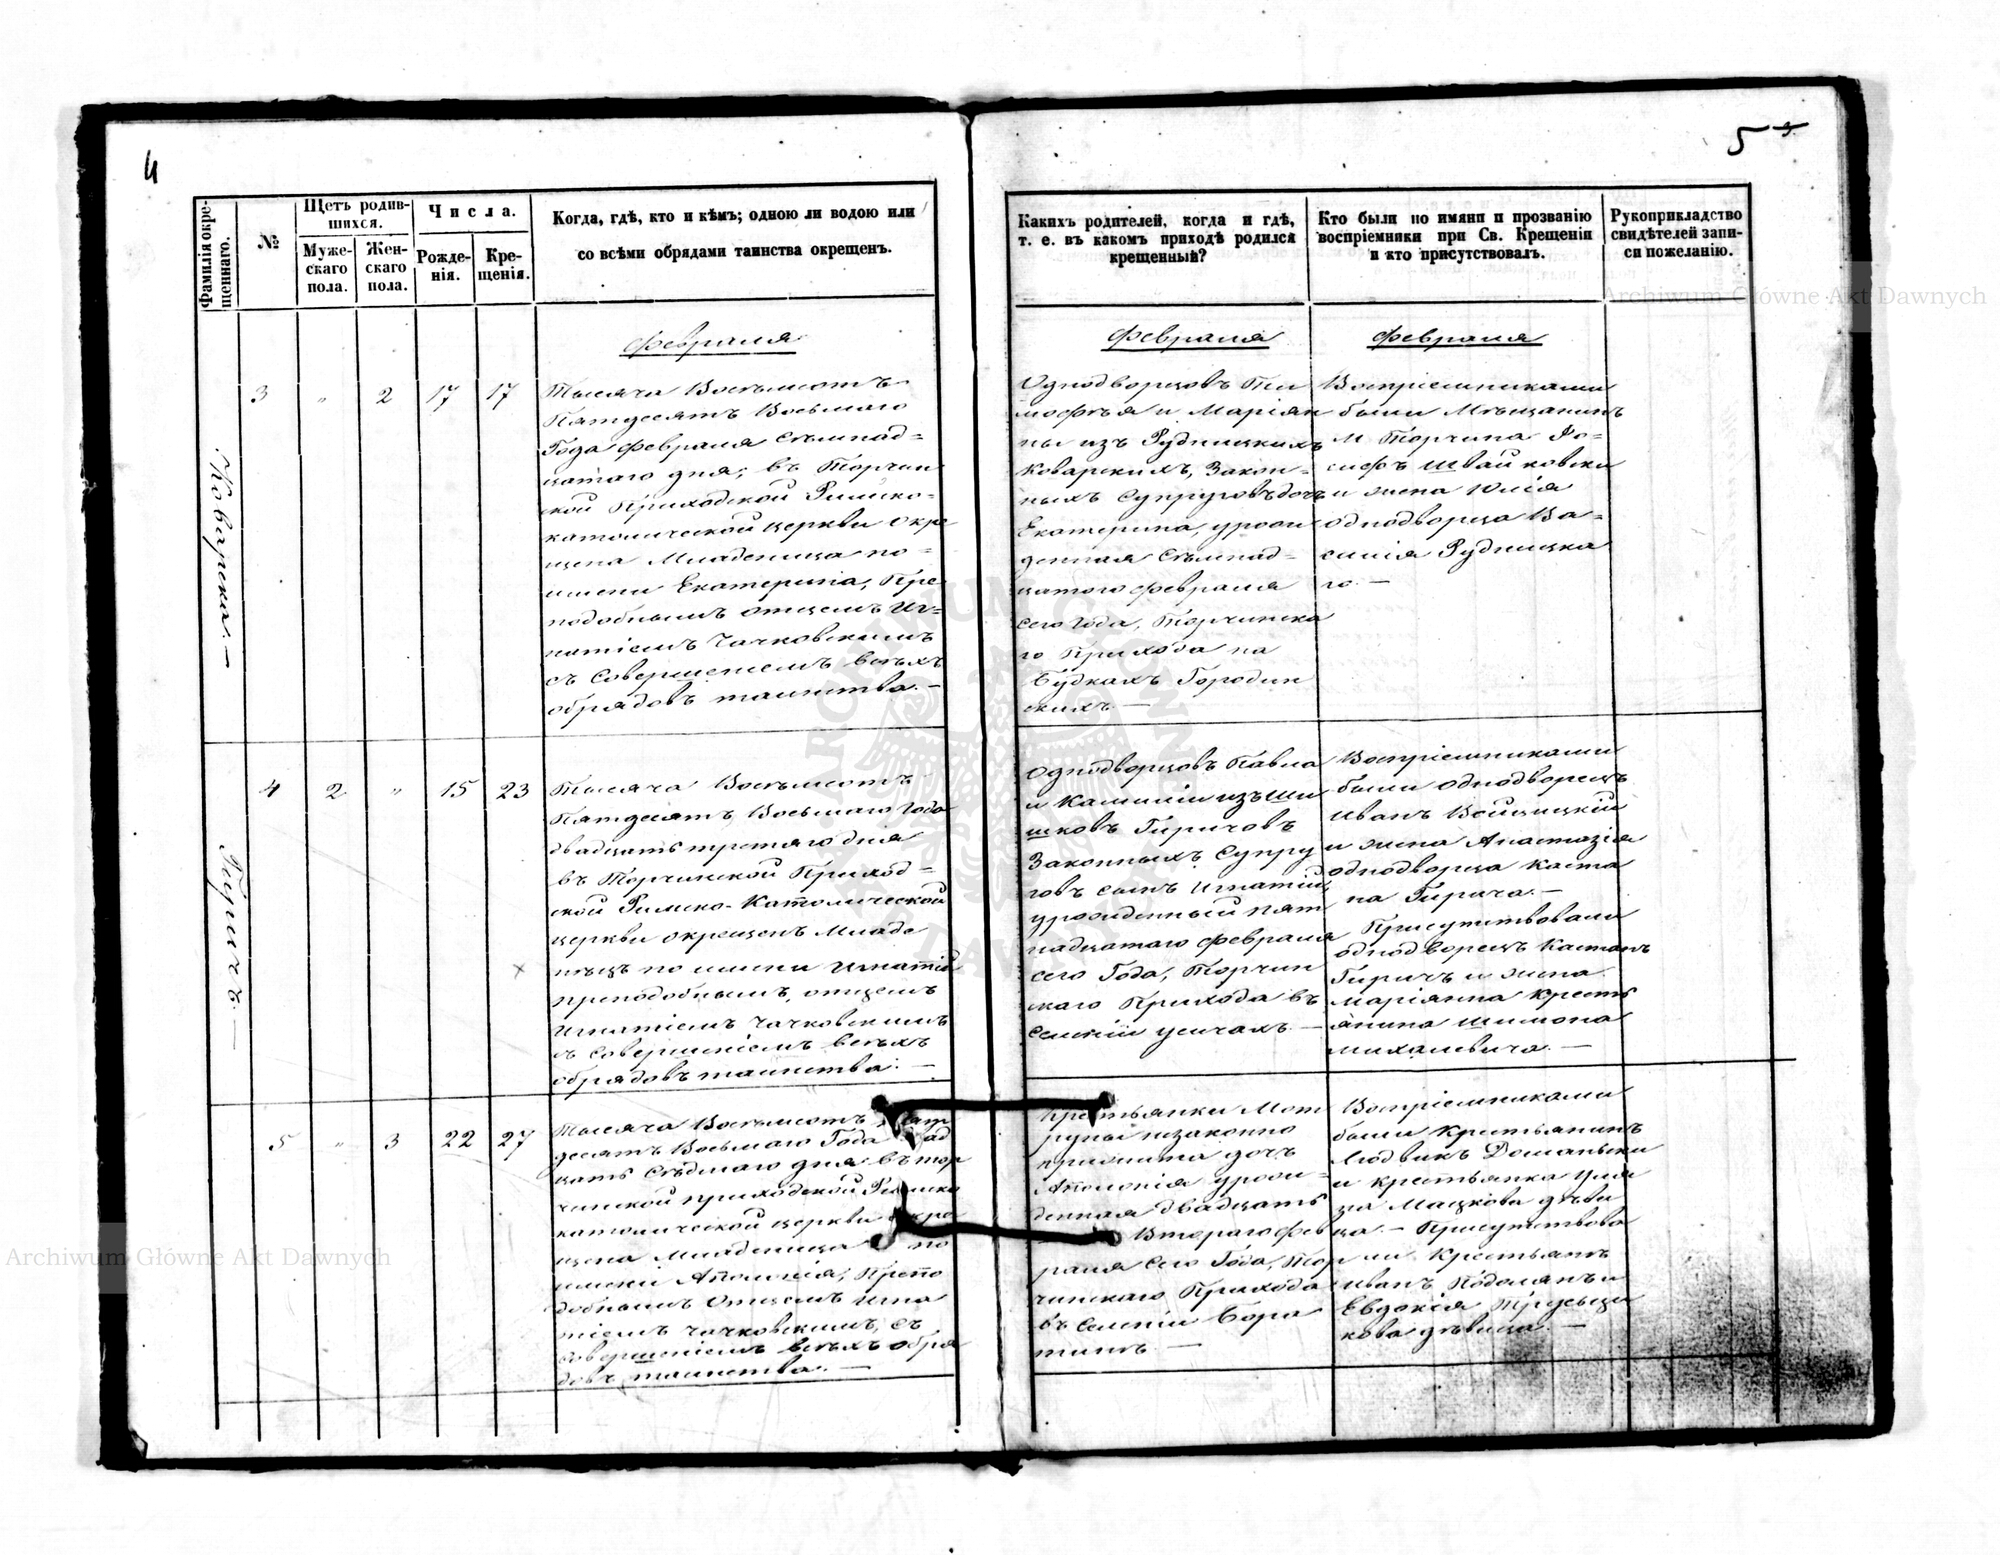 4
Фамилія окре-
щеннаго.
№
Щетъ родив-
шихся.
Муже-
скаго
пола.
Жен-
скаго
пола.
Числа.
Рожде-
нія.
Кре-
щенія.
Когда, гдѣ, кто и кѣмъ; одною ли водою или
со всѣми обрядами таинства окрещенъ.
Коварская. —
3 „ 2 17 17
Февраля
Тысяча Восемьсотъ
Пятдесятъ Восьмаго
Года февраля Семьнад=
цатаго дня, въ Торчин
ской Приходской Римско=
католической церкви окре
щена Младеница по=
имени Екатерина, Пре
подобнымъ отцемъ Иг=
натіемъ Чачковскимъ
съ Совершеніемъ всѣхъ
обрядовъ таинства. —
Гиричъ. —
4 2 „ 15 23
Тысяча Восемьсотъ
Пятдесятъ Восьмаго Года
двадцать третяго дня
въ Торчинской Приход=
ской Римско-Католической
церкви окрещенъ Младе
нецъ по имени Игнатій
преподобнымъ, отцемъ
Игнатіемъ Чачковскимъ
съ совершеніемъ всѣхъ
обрядовъ таинства. —
5 „ 3 22 27
Тысяча Восемьсотъ Пят
десятъ Восьмаго Года двад
цать Седмаго дня въ Тор
чинской приходской Римско
католической церкви окре
щена Младеница по
имени Аполонія, Препо
добнымъ Отцемъ Игна
тіемъ Чачковскимъ, съ
совершеніемъ всѣхъ обря
довъ таинства. —
5
Какихъ родителей, когда и гдѣ,
т. е. въ какомъ приходѣ родился
крещенный?
Кто были по имяни и прозванію
воспріемники при Св. Крещеніи
и кто присутствовалъ.
Рукоприкладство
свидѣтелей запи-
си пожеланію.
Февраля
Однодворцовъ Ти
мофѣя и Маріян
ны изъ Рудницкихъ
Коварскихъ, Закон=
ныхъ Супруговъ дочь
Екатерина, урожи
денная Семьнад=
цатого февраля
сего Года, Торчинска
го Прихода на
Будкахъ Городин
скихъ. —
Февраля
Воспріемниками
были Мѣщанинъ
м Торчина Іо=
сифъ Швайковски
и жена Юлія
однодворца Ва=
силія Рудницка
го. —
Однодворцовъ Павла
и Калиніи изъ Ши
шковъ Гиричовъ
Законныхъ Супру
говъ сынъ Игнатій,
урожденный пят
надцатаго февраля
сего Года, Торчин
скаго Прихода въ
Селеніи Усичахъ. —
Воспріемниками
были однодворецъ
Иванъ Войцицкій
и жена Анастазія
однодворца Каета
на Гирича. —
Присутствовали
однодворецъ Каетанъ
Гиричъ и жена
Маріянна Кресть
янина Шимона
Михалевича. —
Крестьянки Мот
руны незаконно
прижита дочь
Аполонія урожи=
денная двадцать
Втораго фев
раля Сего Года, Тор
чинскаго Прихода
въ Селеніи Бора
тинъ —
Воспріемниками
были Крестьянинъ
Людвикъ Доманьски
и крестьянка Улія
на Мацкова дѣви
ца. — Присутствова
ли Крестьянъ
Иванъ Подолянъ и
Евдокія
кова дѣвица. —
Archiwum Główne Akt Dawnych
Archiwum Główne Akt Dawnych
ARCHIWUM GŁÓWNE AKT DAWNYCH